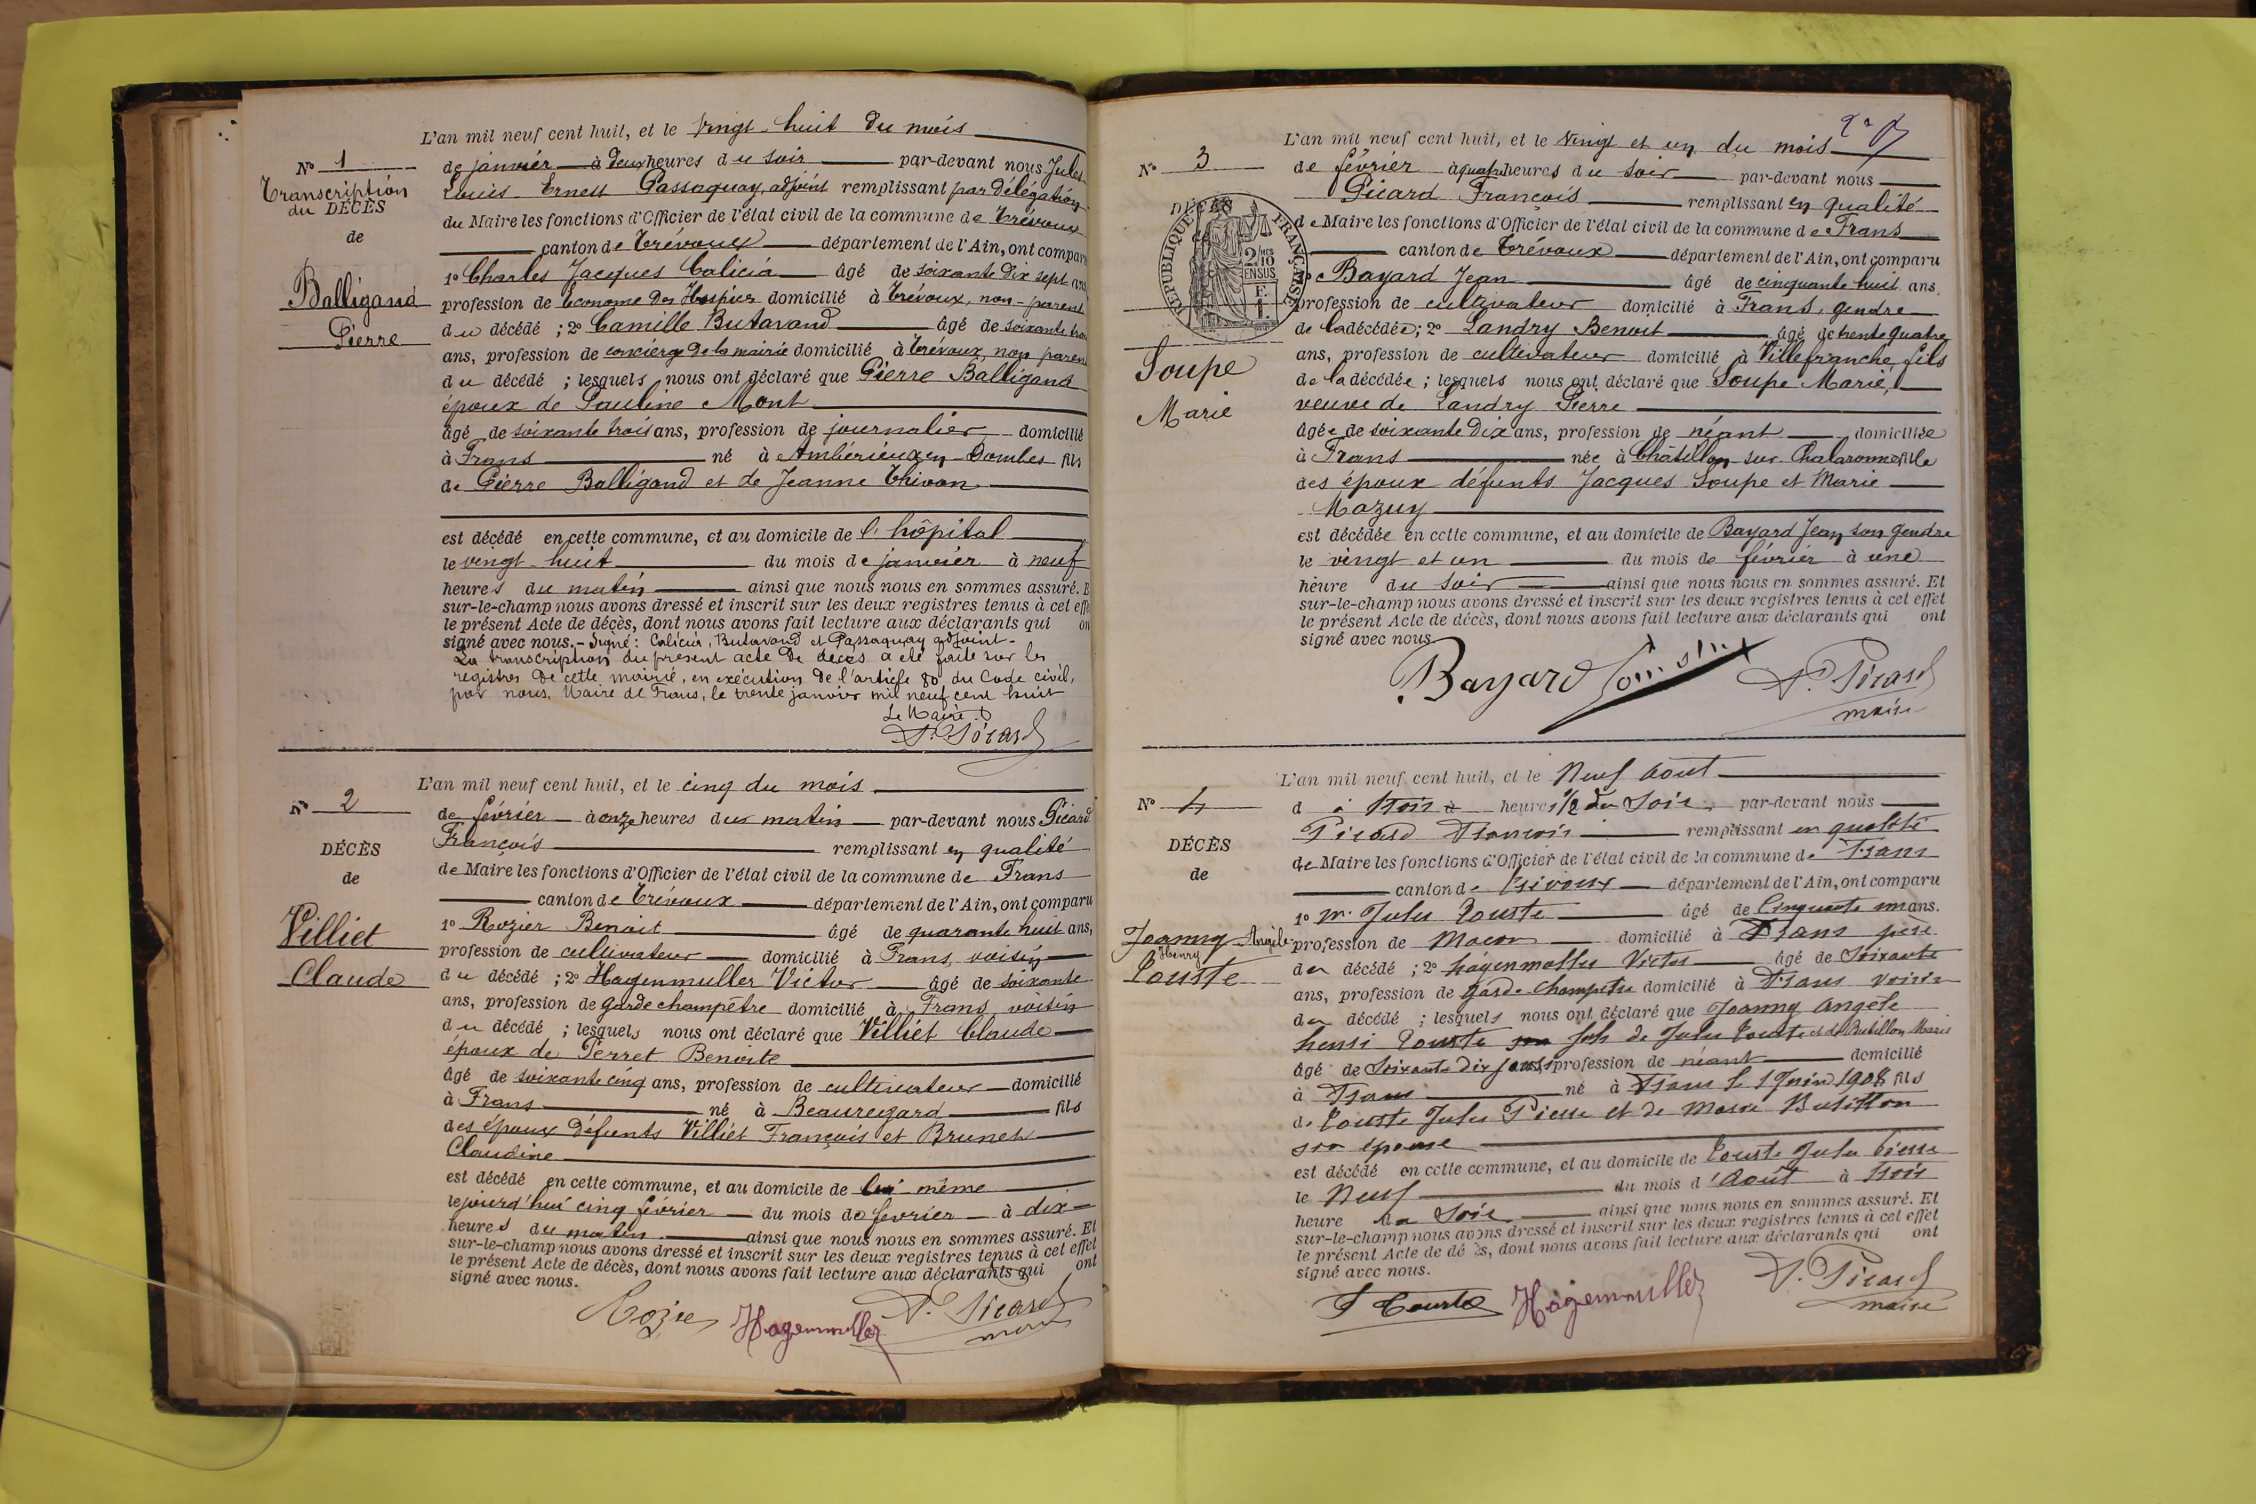 L'an mil neuf cent huit, et le vingt-huit du mois
N° 1
de janvier à deux heures du soir par-devant nous Jules
Transcription
du DÉCÈS
de
Balligand
Pierre
Louis Ernest Passaquay, adjoint remplissant par délégation
du Maire les fonctions d'Officier de l'état civil de la commune de Trévoux
canton de Trévoux département de l'Ain, ont comparu
1° Charles Jacques Calicia âgé de soixante dix sept ans
profession de Econome des Hospices domicilié à Trévoux, non-parent
du décédé ; 2° Camille Butavand âgé de soixante trois
ans, profession de concierge de la mairie domicilié à Trévoux, non parent
du décédé ; lesquels nous ont déclaré que Pierre Balligand
époux de Pauline Mont
âgé de soixante trois ans, profession de journalier domicilié
à Frans né à Ambérieux en Dombes fils
de Pierre Balligand et de Jeanne Thivon
est décédé en cette commune, et au domicile de l'hôpital
le vingt-huit du mois de janvier à neuf
heures du matin ainsi que nous nous en sommes assuré. E
sur-le-champ nous avons dressé et inscrit sur les deux registres tenus à cet effe
le présent Acte de décès, dont nous avons fait lecture aux déclarants qui on
signé avec nous. - Signé : Calicia, Butavand et Passaquay adjoint -
La transcription du présent acte de décès a été faite sur les
registres de cette mairie, en exécution de l'article 80 du Code civil,
par nous, Maire de Frans, le trente janvier mil neuf cent huit
Le Maire
F. Picard
L'an mil neuf cent huit, et le cinq du mois
N° 2
DÉCÈS
de
Villiet
Claude
de février à onze heures du matin par-devant nous Picard
François remplissant en qualité
de Maire les fonctions d'Officier de l'état civil de la commune de Frans
canton de Trévoux département de l'Ain, ont comparu
1° Rozier Benoit âgé de quarante huit ans,
profession de cultivateur domicilié à Frans, voisin
du décédé ; 2° Hagenmuller Victor âgé de soixante
ans, profession de garde champêtre domicilié à Frans, voisin
du décédé ; lesquels nous ont déclaré que Villiet Claude
époux de Perret Benoite
âgé de soixante cinq ans, profession de cultivateur domicilié
à Frans né à Beauregard fils
des époux défunts Villiet François et Brunet
Claudine
est décédé en cette commune, et au domicile de lui même
le jourd'hui cinq février du mois de février à dix
heures du matin ainsi que nous nous en sommes assuré. Et
sur-le-champ nous avons dressé et inscrit sur les deux registres tenus à cet effet
le présent Acte de décès, dont nous avons fait lecture aux déclarants qui ont
signé avec nous.
Rozier Hagenmuller F. Picard
maire
L'an mil neuf cent huit, et le vingt et un du mois
N° 3
DÉCÈS
RÉPUBLIQUE FRANÇAISE
2/10 EN SUS
Soupe
Marie
de février à quatre heures du soir par-devant nous
Picard François remplissant en qualité
de Maire les fonctions d'Officier de l'état civil de la commune de Frans
canton de Trévoux département de l'Ain, ont comparu
Bayard Jean âgé de cinquante huit ans,
profession de cultivateur domicilié à Frans, gendre
de la décédée ; 2° Landry Benoit âgé de trente quatre
ans, profession de cultivateur domicilié à Villefranche, fils
de la décédée ; lesquels nous ont déclaré que Soupe Marie,
veuve de Landry Pierre
âgée de soixante dix ans, profession de néant domiciliée
à Frans née à Châtillon-sur-Chalaronne fille
des époux défunts Jacques Soupe et Marie
Mazuy
est décédée en cette commune, et au domicile de Bayard Jean son gendre
le vingt et un du mois de février à une
heure du soir ainsi que nous nous en sommes assuré. Et
sur-le-champ nous avons dressé et inscrit sur les deux registres tenus à cet effet
le présent Acte de décès, dont nous avons fait lecture aux déclarants qui ont
signé avec nous
Bayard F. Picard
maire
L'an mil neuf cent huit, et le Neuf Aout
N° 4
DÉCÈS
de
Joanny Angèle
Henry
Touste
d à trois heures 1/2 du Soir, par-devant nous
Picard François remplissant en qualité
de Maire les fonctions d'Officier de l'état civil de la commune de Frans
canton de Trévoux département de l'Ain, ont comparu
1° M. Jules Touste âgé de Cinquante un ans.
profession de Maçon domicilié à Frans père
du décédé ; 2° hagenmuller Victor âgé de Soixante
ans, profession de Garde Champêtre domicilié à Frans voisin
du décédé ; lesquels nous ont déclaré que Joanny Angèle
henri Touste fils de Jules Touste et de Butillon Marie
âgé de Soixante Dix jours profession de néant domicilié
à Frans né à Frans le 1 Juin 1908 fils
de Touste Jules Pierre et de Marie Butillon
son épouse
est décédé en cette commune, et au domicile de Touste Jules Pierre
le Neuf du mois d'Août à trois
heure du Soir ainsi que nous nous en sommes assuré. Et
sur-le-champ nous avons dressé et inscrit sur les deux registres tenus à cet effet
le présent Acte de décès, dont nous avons fait lecture aux déclarants qui ont
signé avec nous.
J Touste Hagenmuller F. Picard
maire